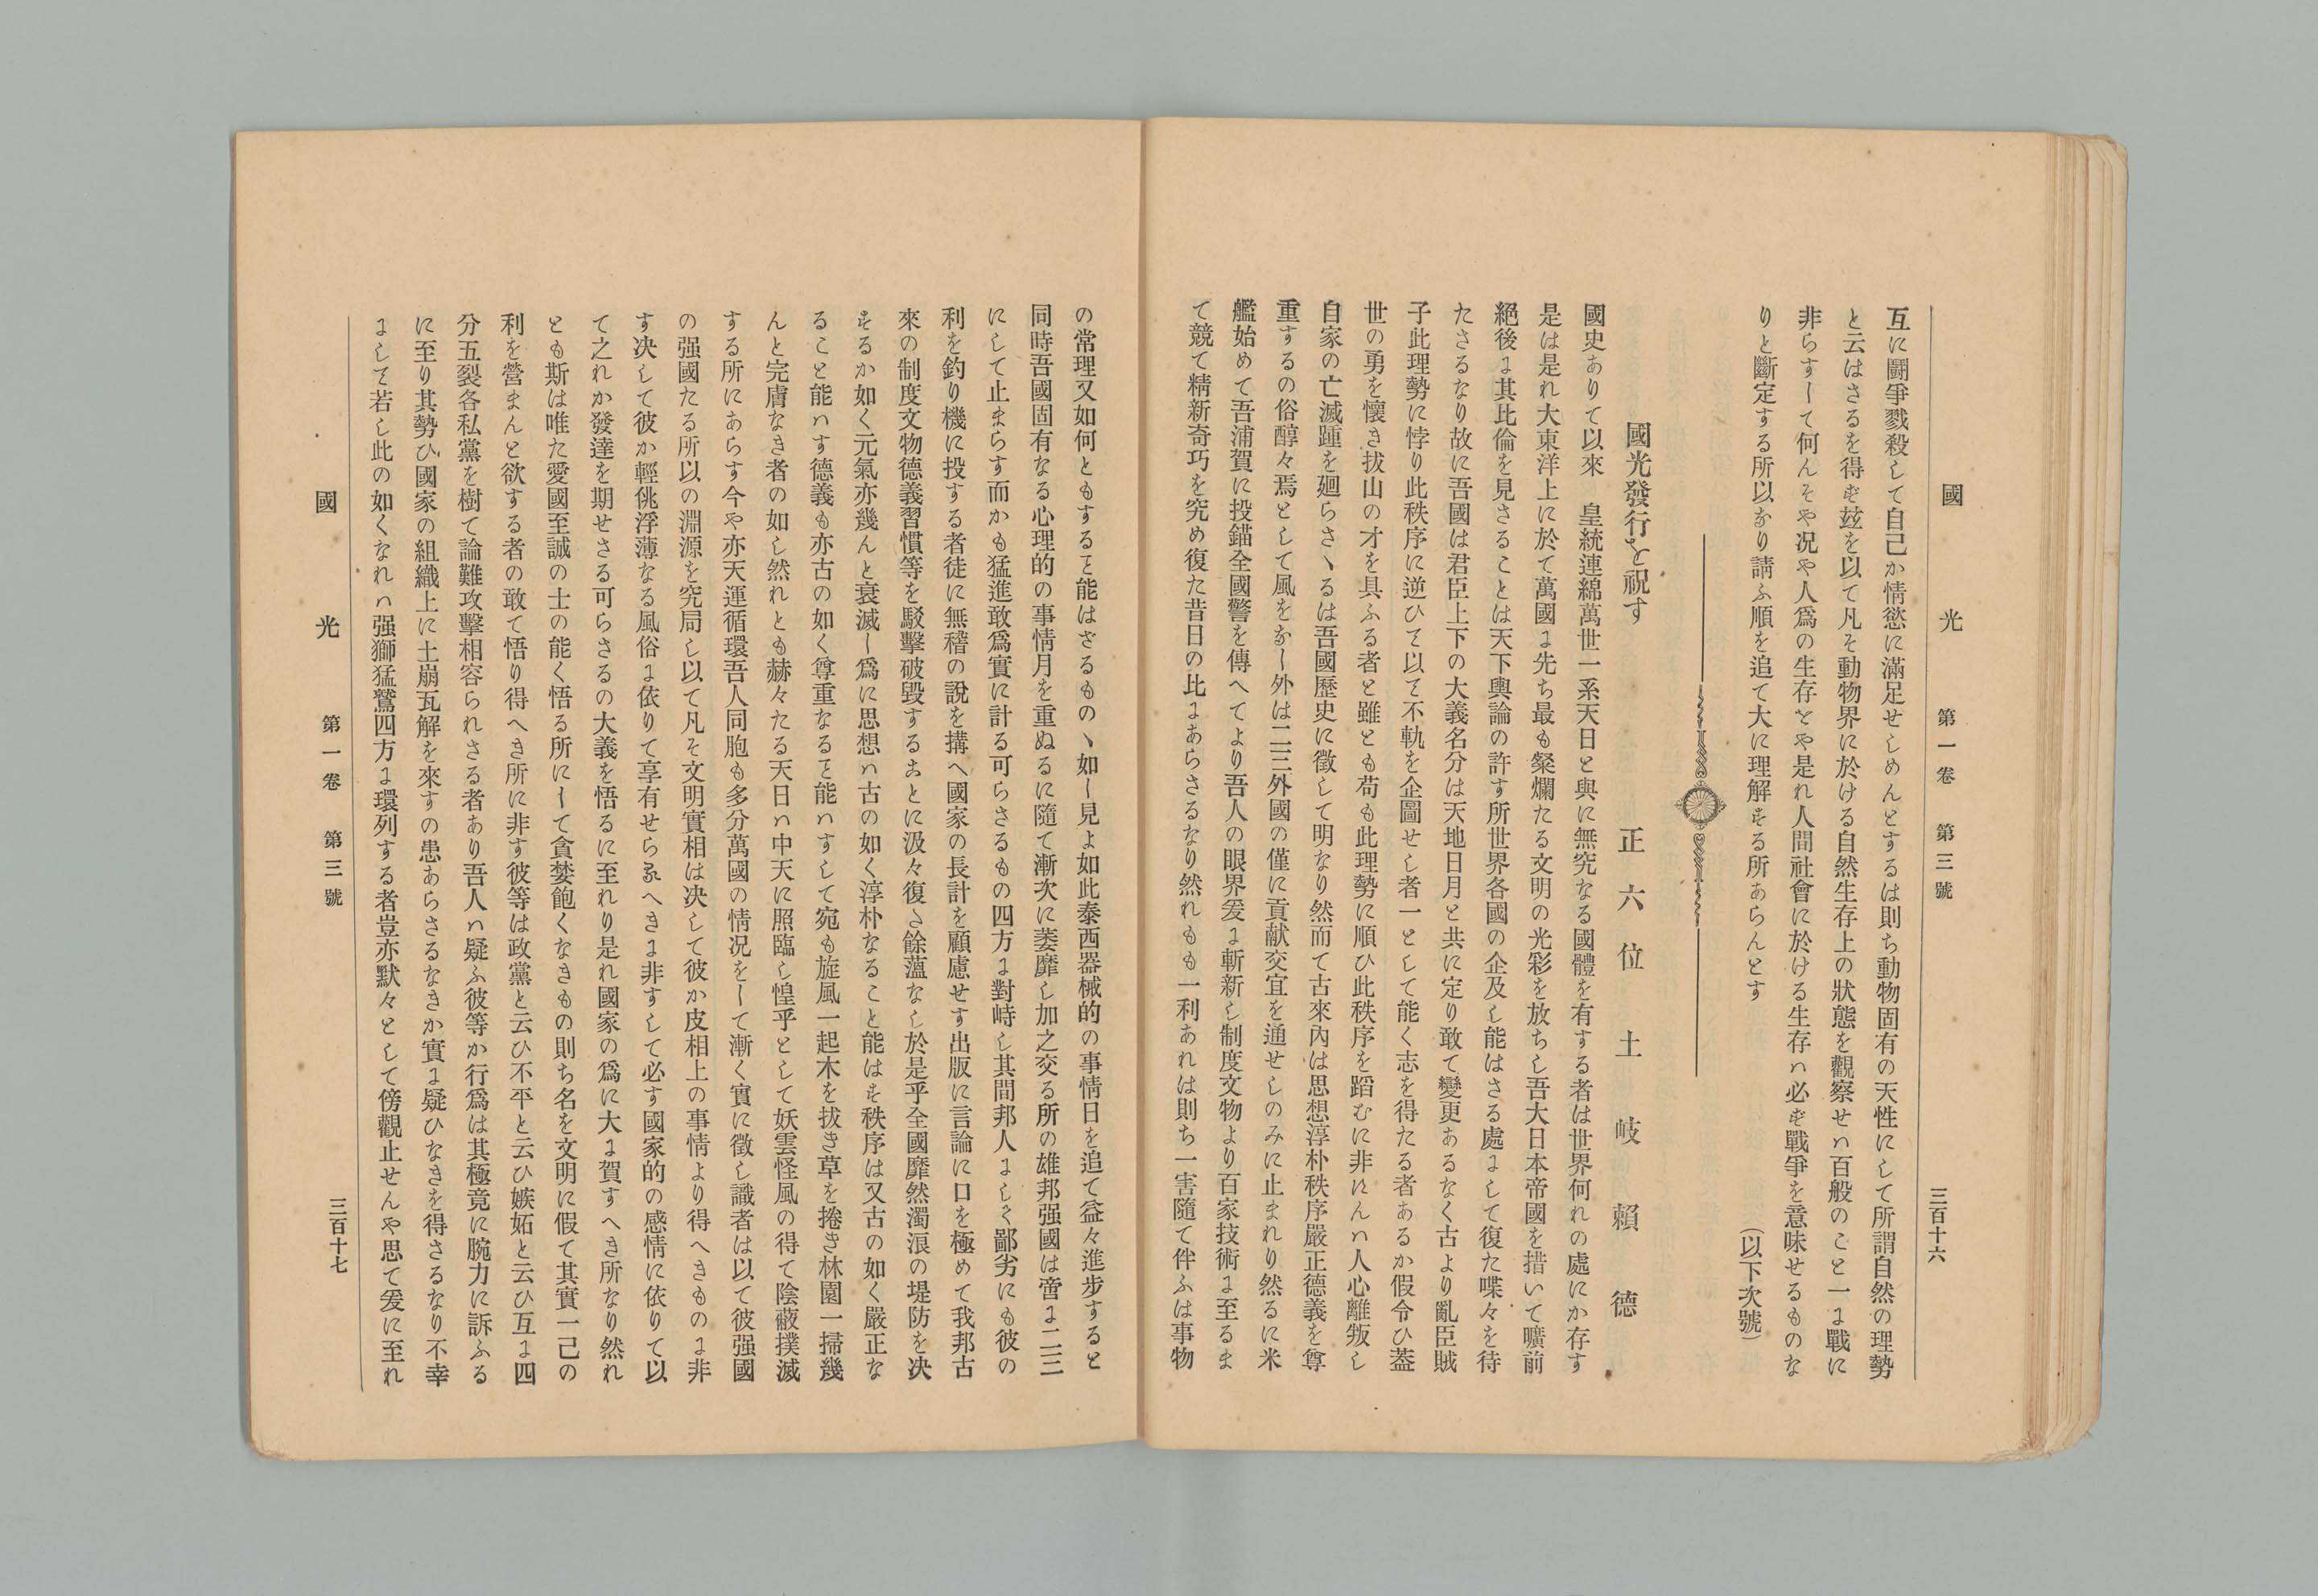 國光 第一卷 第三號 三百十六
互に鬪爭戮殺して自己か情慾に滿足せしめんとするは則ち動物固有の天性にして所謂自然の理勢
と云はさるを得ず玆を以て凡そ動物界に於ける自然生存上の狀態を觀察せハ百般のこと一に戰に
非らすして何んそや况や人爲の生存をや是れ人間社會に於ける生存ハ必ず戰爭を意味せるものな
りと斷定する所以なり請ふ順を追て大に理解する所あらんとす（以下次號）
國光發行を祝す
正六位 土岐賴德
國史ありて以來 皇統連綿萬世一系天日と與に無究なる國體を有する者は世界何れの處にか存す
是は是れ大東洋上に於て萬國に先ち最も粲爛たる文明の光彩を放ちし吾大日本帝國を措いて曠前
絕後に其比倫を見さることは天下輿論の許す所世界各國の企及し能はさる處にして復た喋々を待
たさるなり故に吾國は君臣上下の大義名分は天地日月と共に定り敢て變更あるなく古より亂臣賊
子此理勢に悖り此秩序に逆ひて以て不軌を企圖せし者一として能く志を得たる者あるか假令ひ蓋
世の勇を懷き拔山の才を具ふる者と雖とも苟も此理勢に順ひ此秩序を蹈むに非れんハ人心離叛し
自家の亡滅踵を廻らさゝるは吾國歷史に徵して明なり然而て古來內は思想淳朴秩序嚴正德義を尊
重するの俗醇々焉として風をなし外は二三外國の僅に貢献交宜を通せしのみに止まれり然るに米
艦始めて吾浦賀に投錨全國警を傳へてより吾人の眼界爰に斬新し制度文物より百家技術に至るま
て競て精新奇巧を究め復た昔日の比にあらさるなり然れもも一利あれは則ち一害隨て伴ふは事物
の常理又如何ともするヿ能はざるものゝ如し見よ如此泰西器械的の事情日を追て益々進步すると
同時吾國固有なる心理的の事情月を重ぬるに隨て漸次に萎靡し加之交る所の雄邦强國は啻に二三
にして止まらす而かも猛進敢爲實に計る可らさるもの四方に對峙し其間邦人にして鄙劣にも彼の
利を釣り機に投する者徒に無稽の說を搆へ國家の長計を顧慮せす出版に言論に口を極めて我邦古
來の制度文物德義習慣等を駁擊破毀することに汲々復た餘薀なし於是乎全國靡然濁浪の堤防を决
するか如く元氣亦幾んと衰滅し爲に思想ハ古の如く淳朴なること能はす秩序は又古の如く嚴正な
ること能ハす德義も亦古の如く尊重なるヿ能ハすして宛も旋風一起木を拔き草を捲き林園一掃幾
んと完膚なき者の如し然れとも赫々たる天日ハ中天に照臨し惶乎として妖雲怪風の得て陰蔽撲滅
する所にあらす今や亦天運循環吾人同胞も多分萬國の情況をして漸く實に徵し識者は以て彼强國
の强國たる所以の淵源を究局し以て凡そ文明實相は决して彼か皮相上の事情より得へきものに非
す决して彼か輕佻浮薄なる風俗に依りて享有せらるへきに非すして必す國家的の感情に依りて以
て之れか發達を期せさる可らさるの大義を悟るに至れり是れ國家の爲に大に賀すへき所なり然れ
とも斯は唯た愛國至誠の士の能く悟る所にして貪婪飽くなきもの則ち名を文明に假て其實一己の
利を營まんと欲する者の敢て悟り得へき所に非す彼等は政黨と云ひ不平と云ひ嫉妬と云ひ互に四
分五裂各私黨を樹て論難攻擊相容られさる者あり吾人ハ疑ふ彼等か行爲は其極竟に腕力に訴ふる
に至り其勢ひ國家の組織上に土崩瓦解を來すの患あらさるなきか實に疑ひなきを得さるなり不幸
にして若し此の如くなれハ强獅猛鷲四方に環列する者豈亦默々として傍觀止せんや思て爰に至れ
國光 第一卷 第三號 三百十七